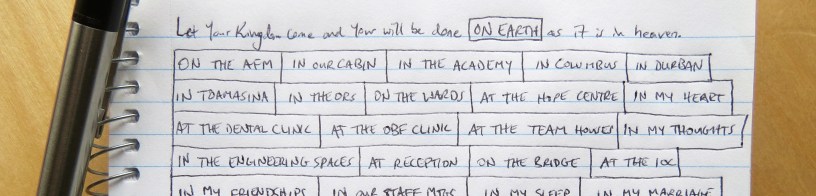 Let Your Kingdom come and Your will be done ON EARTH as it is in heaven.
ON THE AFM IN OUR CABIN IN THE ACADEMY IN COLUMBUS IN DURBAN
IN TOAMASINA IN THE ORS ON THE WARDS AT THE HOPE CENTRE IN MY HEART
AT THE DENTAL CLINIC AT THE OBF CLINIC AT THE TEAM HOUSES IN MY THOUGHTS
IN THE ENGINEERING SPACES AT RECEPTION ON THE BRIDGE AT THE IOC
IN MY FRIENDSHIPS IN OUR STAFF MTGS IN MY SLEEP IN MY MARRIAGE